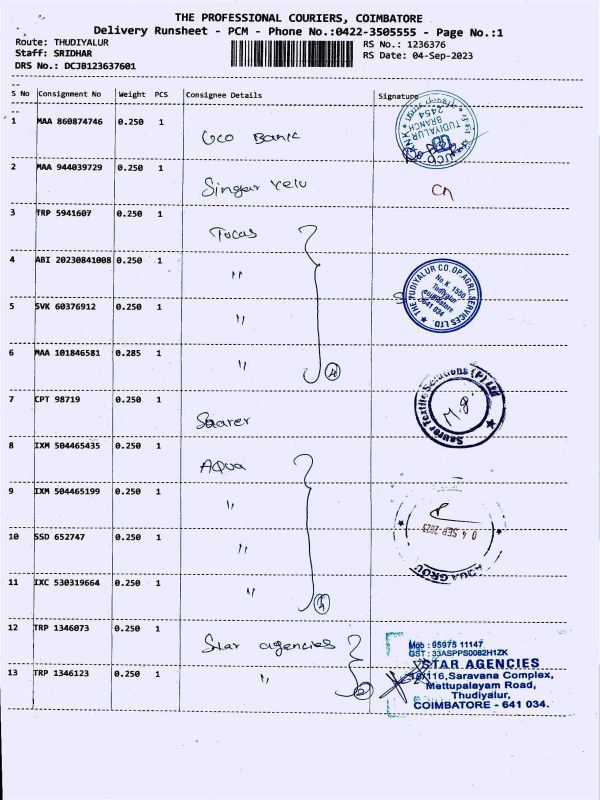 THE PROFESSIONAL COURIERS, COIMBATORE
Delivery Runsheet - PCM - Phone No.:0422-3505555 - Page No.:1
Route: THUDIYALUR
RS No.: 1236376
Staff: SRIDHAR
RS Date: 04-Sep-2023
DRS No.: DCJB123637601
S No Consignment No Weight PCS Consignee Details Signature
1 MAA 860874746 0.250 1 Uco Bank
TUDIYALUR BRANCH 2454
2 MAA 944039729 0.250 1 Singar velu
3 TRP 5941607 0.250 1 Tucas
4 ABI 20230841008 0.250 1 "
THE TUDIYALUR CO.OP.AGRL. SERVICES LTD
No.K 1550
Tudiyalur
Coimbatore
641 034
5 SVK 60376912 0.250 1 "
6 MAA 101846581 0.285 1 " 4
7 CPT 98719 0.250 1 Saurer
Saurer Textile Solutions (P) Ltd
8 IXM 504465435 0.250 1 AQUA
9 IXM 504465199 0.250 1 "
04 SEP 2023
10 SSD 652747 0.250 1 "
AQUA GROU
11 IXC 530319664 0.250 1 " 4
12 TRP 1346073 0.250 1 Star agencies
Mob : 95975 11147
GST : 33ASPPS0082H1ZK
STAR AGENCIES
13 TRP 1346123 0.250 1 " 2
/116,Saravana Complex,
Mettupalayam Road,
Thudiyalur,
COIMBATORE - 641 034.